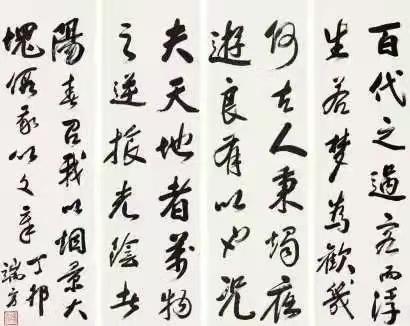 百代之過客而浮
生若夢為歡幾
何古人秉燭夜
遊良有以也況
夫天地者萬物
之逆旅光陰者
陽春召我以烟景大
塊假我以文章
丁卯
端方